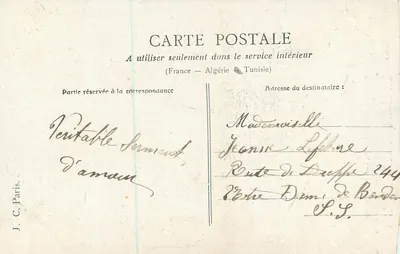 CARTE POSTALE
A utiliser seulement dans le service intérieur
(France — Algérie & Tunisie)
Partie réservée à la correspondance
Adresse du destinataire :
Véritable Serment
d'amour
Mademoiselle
Jeanne Lefebvre
Route de Dieppe 244
Notre Dame de Bondeville
S. I.
J. C. Paris.